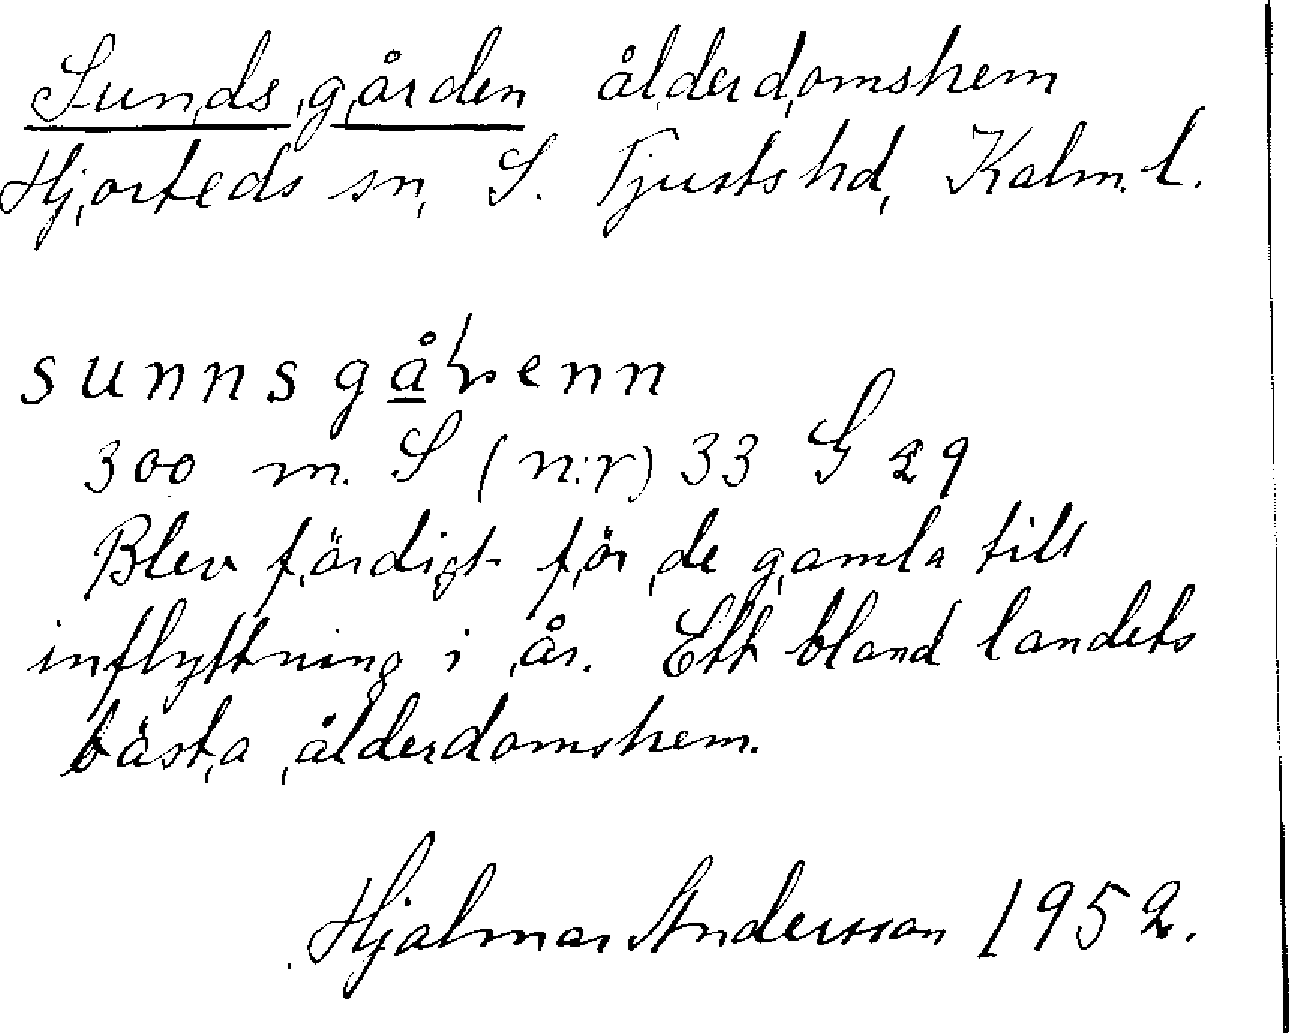 Sundsgården ålderdomshem
Hjorteds sn, S. Tjusts hd, Kalm. l.
sunnsgårenn
300 m. S (n:r) 33 G 29
Blev färdigt för de gamla till
inflyttning i år. Ett bland landets
bästa ålderdomshem.
Hjalmar Andersson 1952.